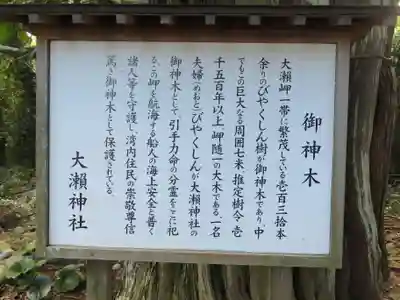 御神木
大瀬岬一帯に繁茂している壱百三拾本
余りのびやくしん樹が御神木であり、中
でもこの巨大なる周囲七米、推定樹令壱
千五百年以上岬随一の大木である。一名
夫婦（めおと）びやくしんが大瀬神社の
御神木として、引手力命の分霊をここに祀
る。この岬を航海する船人の海上安全と普く
諸人等を守護し、湾内住民の崇敬尊信
篤き御神木として保護されている。
大瀬神社